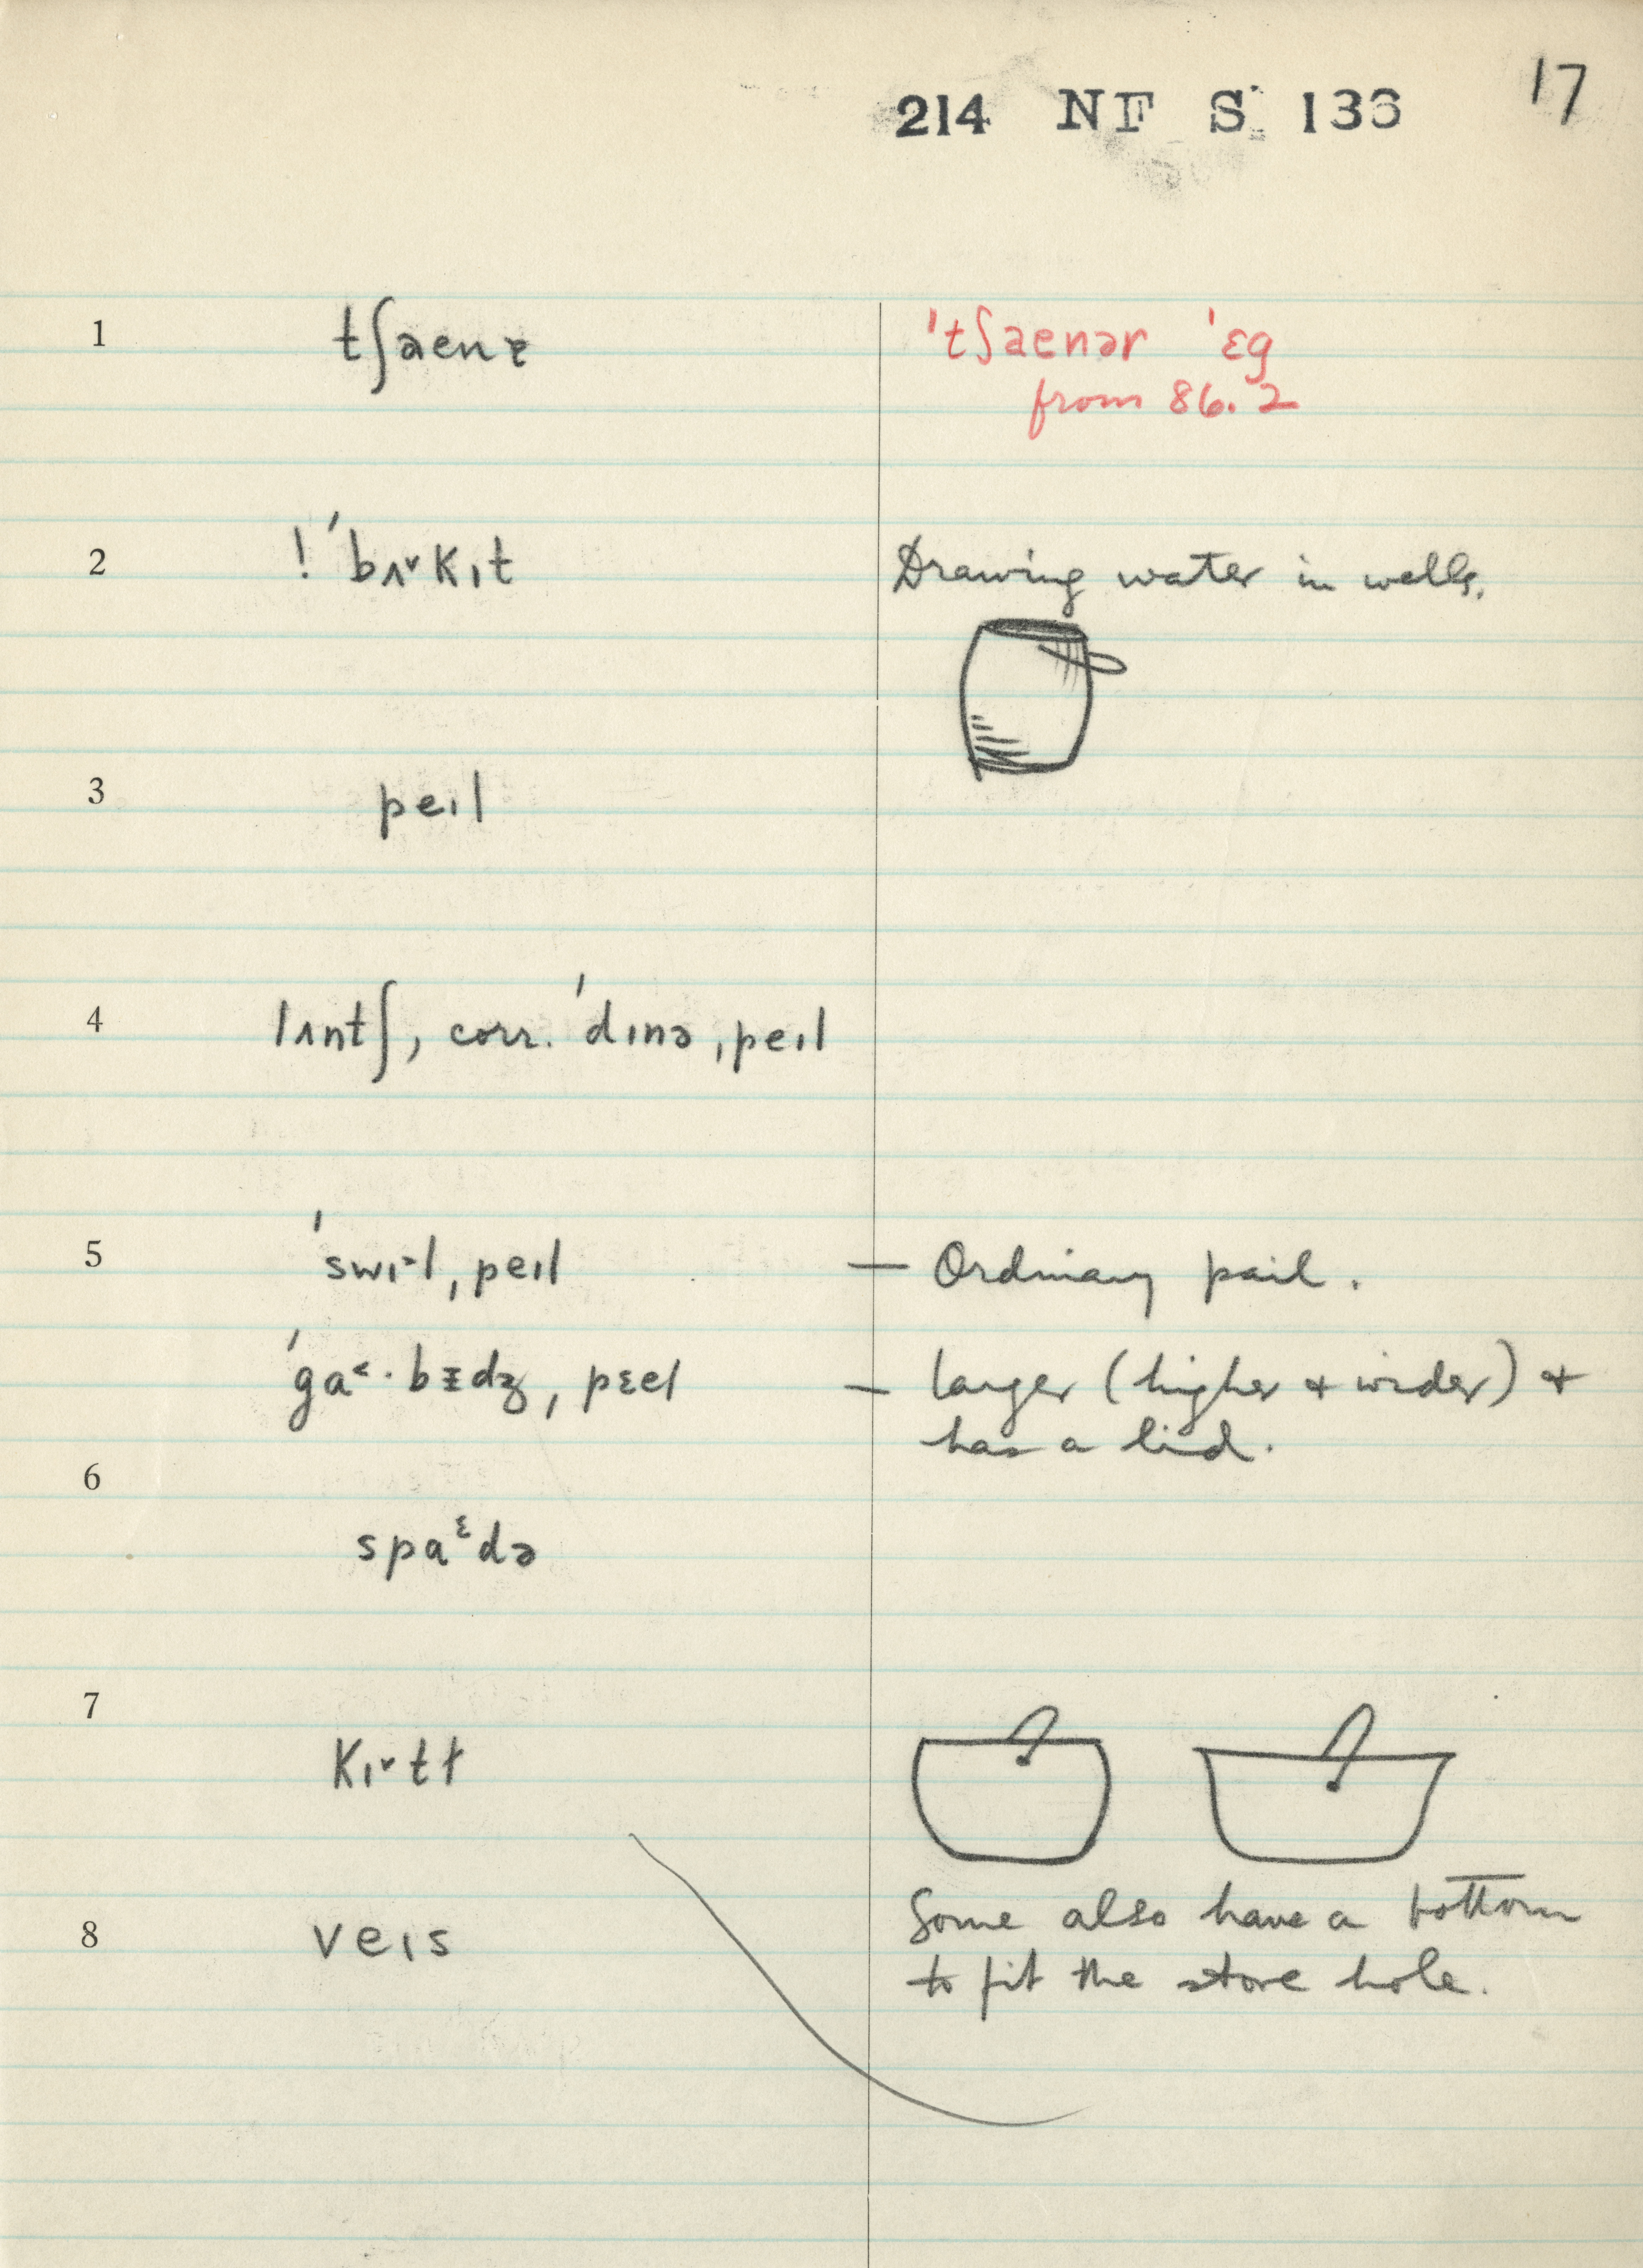 214 NF S 136 17
1 tʃaenɐ 'tʃaenər 'ɛg
from 86.2
2 ! 'bʌ˅kɪt Drawing water in wells.
3 peɪl
4 lʌntʃ, corr. 'dɪnə ˌpeɪl
5 'swɪ˃l ˌpeɪl — Ordinary pail.
'ga˂·bɪdʒ ˌpɛel — larger (higher + wider) +
has a lid.
6
spaᵋdə
7
kɪ˅tɫ
Some also have a bottom
8 veɪs
to fit the stove hole.